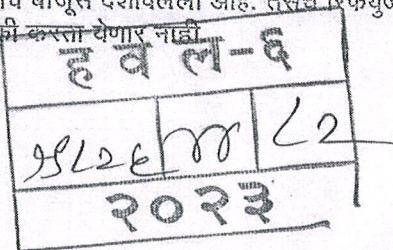 बाजूस दर्शविलेली आहे. तसेच
करता येणार नाही
हवल-६
४४ ८२
२०२३